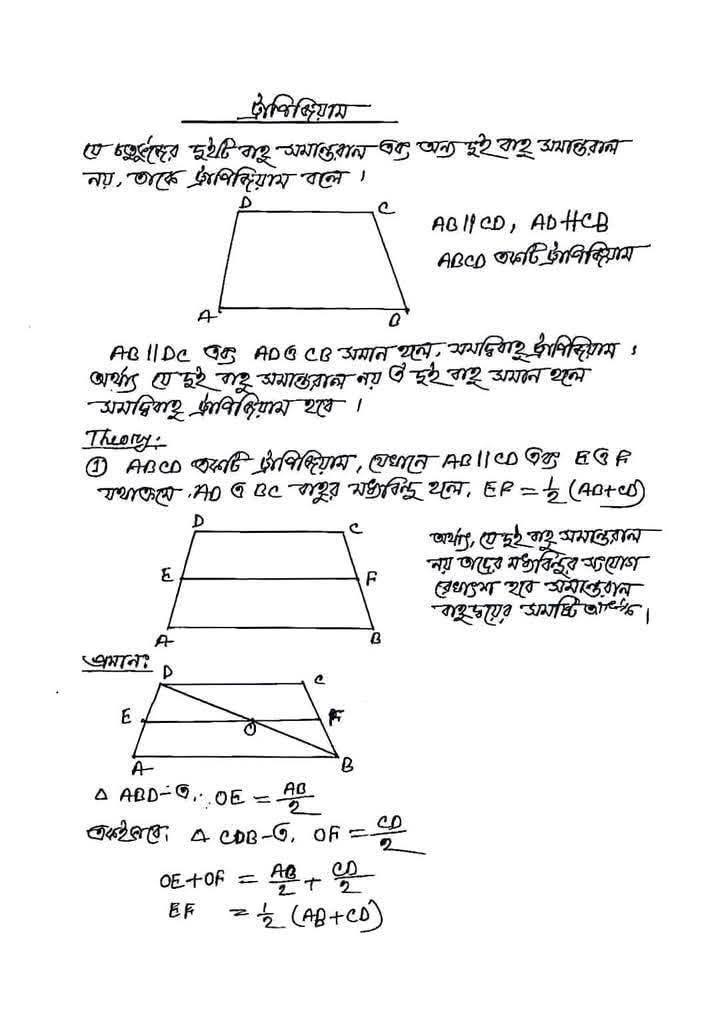 ট্রাপিজিয়াম
যে চতুর্ভুজের দুইটি বাহু সমান্তরাল এবং অন্য দুই বাহু সমান্তরাল
নয়, তাকে ট্রাপিজিয়াম বলে ।
D C
AB∥CD, AD∦CB
ABCD একটি ট্রাপিজিয়াম
A B
AB∥DC এবং AD ও CB সমান হলে, সমদ্বিবাহু ট্রাপিজিয়াম ।
অর্থাৎ যে দুই বাহু সমান্তরাল নয় ঐ দুই বাহু সমান হলে
সমদ্বিবাহু ট্রাপিজিয়াম হবে ।
Theory:
① ABCD একটি ট্রাপিজিয়াম, যেখানে AB∥CD এবং E ও F
যথাক্রমে AD ও BC বাহুর মধ্যবিন্দু হলে, EF = 1/2 (AB+CD)
D C
E F
A B
অর্থাৎ, যে দুই বাহু সমান্তরাল
নয় তাদের মধ্যবিন্দুর সংযোগ
রেখাংশ হবে সমান্তরাল
বাহুদ্বয়ের সমষ্টি অর্ধেক ।
প্রমান:
D C
E O F
A B
△ ABD-এ, OE = AB/2
একইভাবে, △ CDB-এ, OF = CD/2
OE+OF = AB/2 + CD/2
EF = 1/2 (AB+CD)